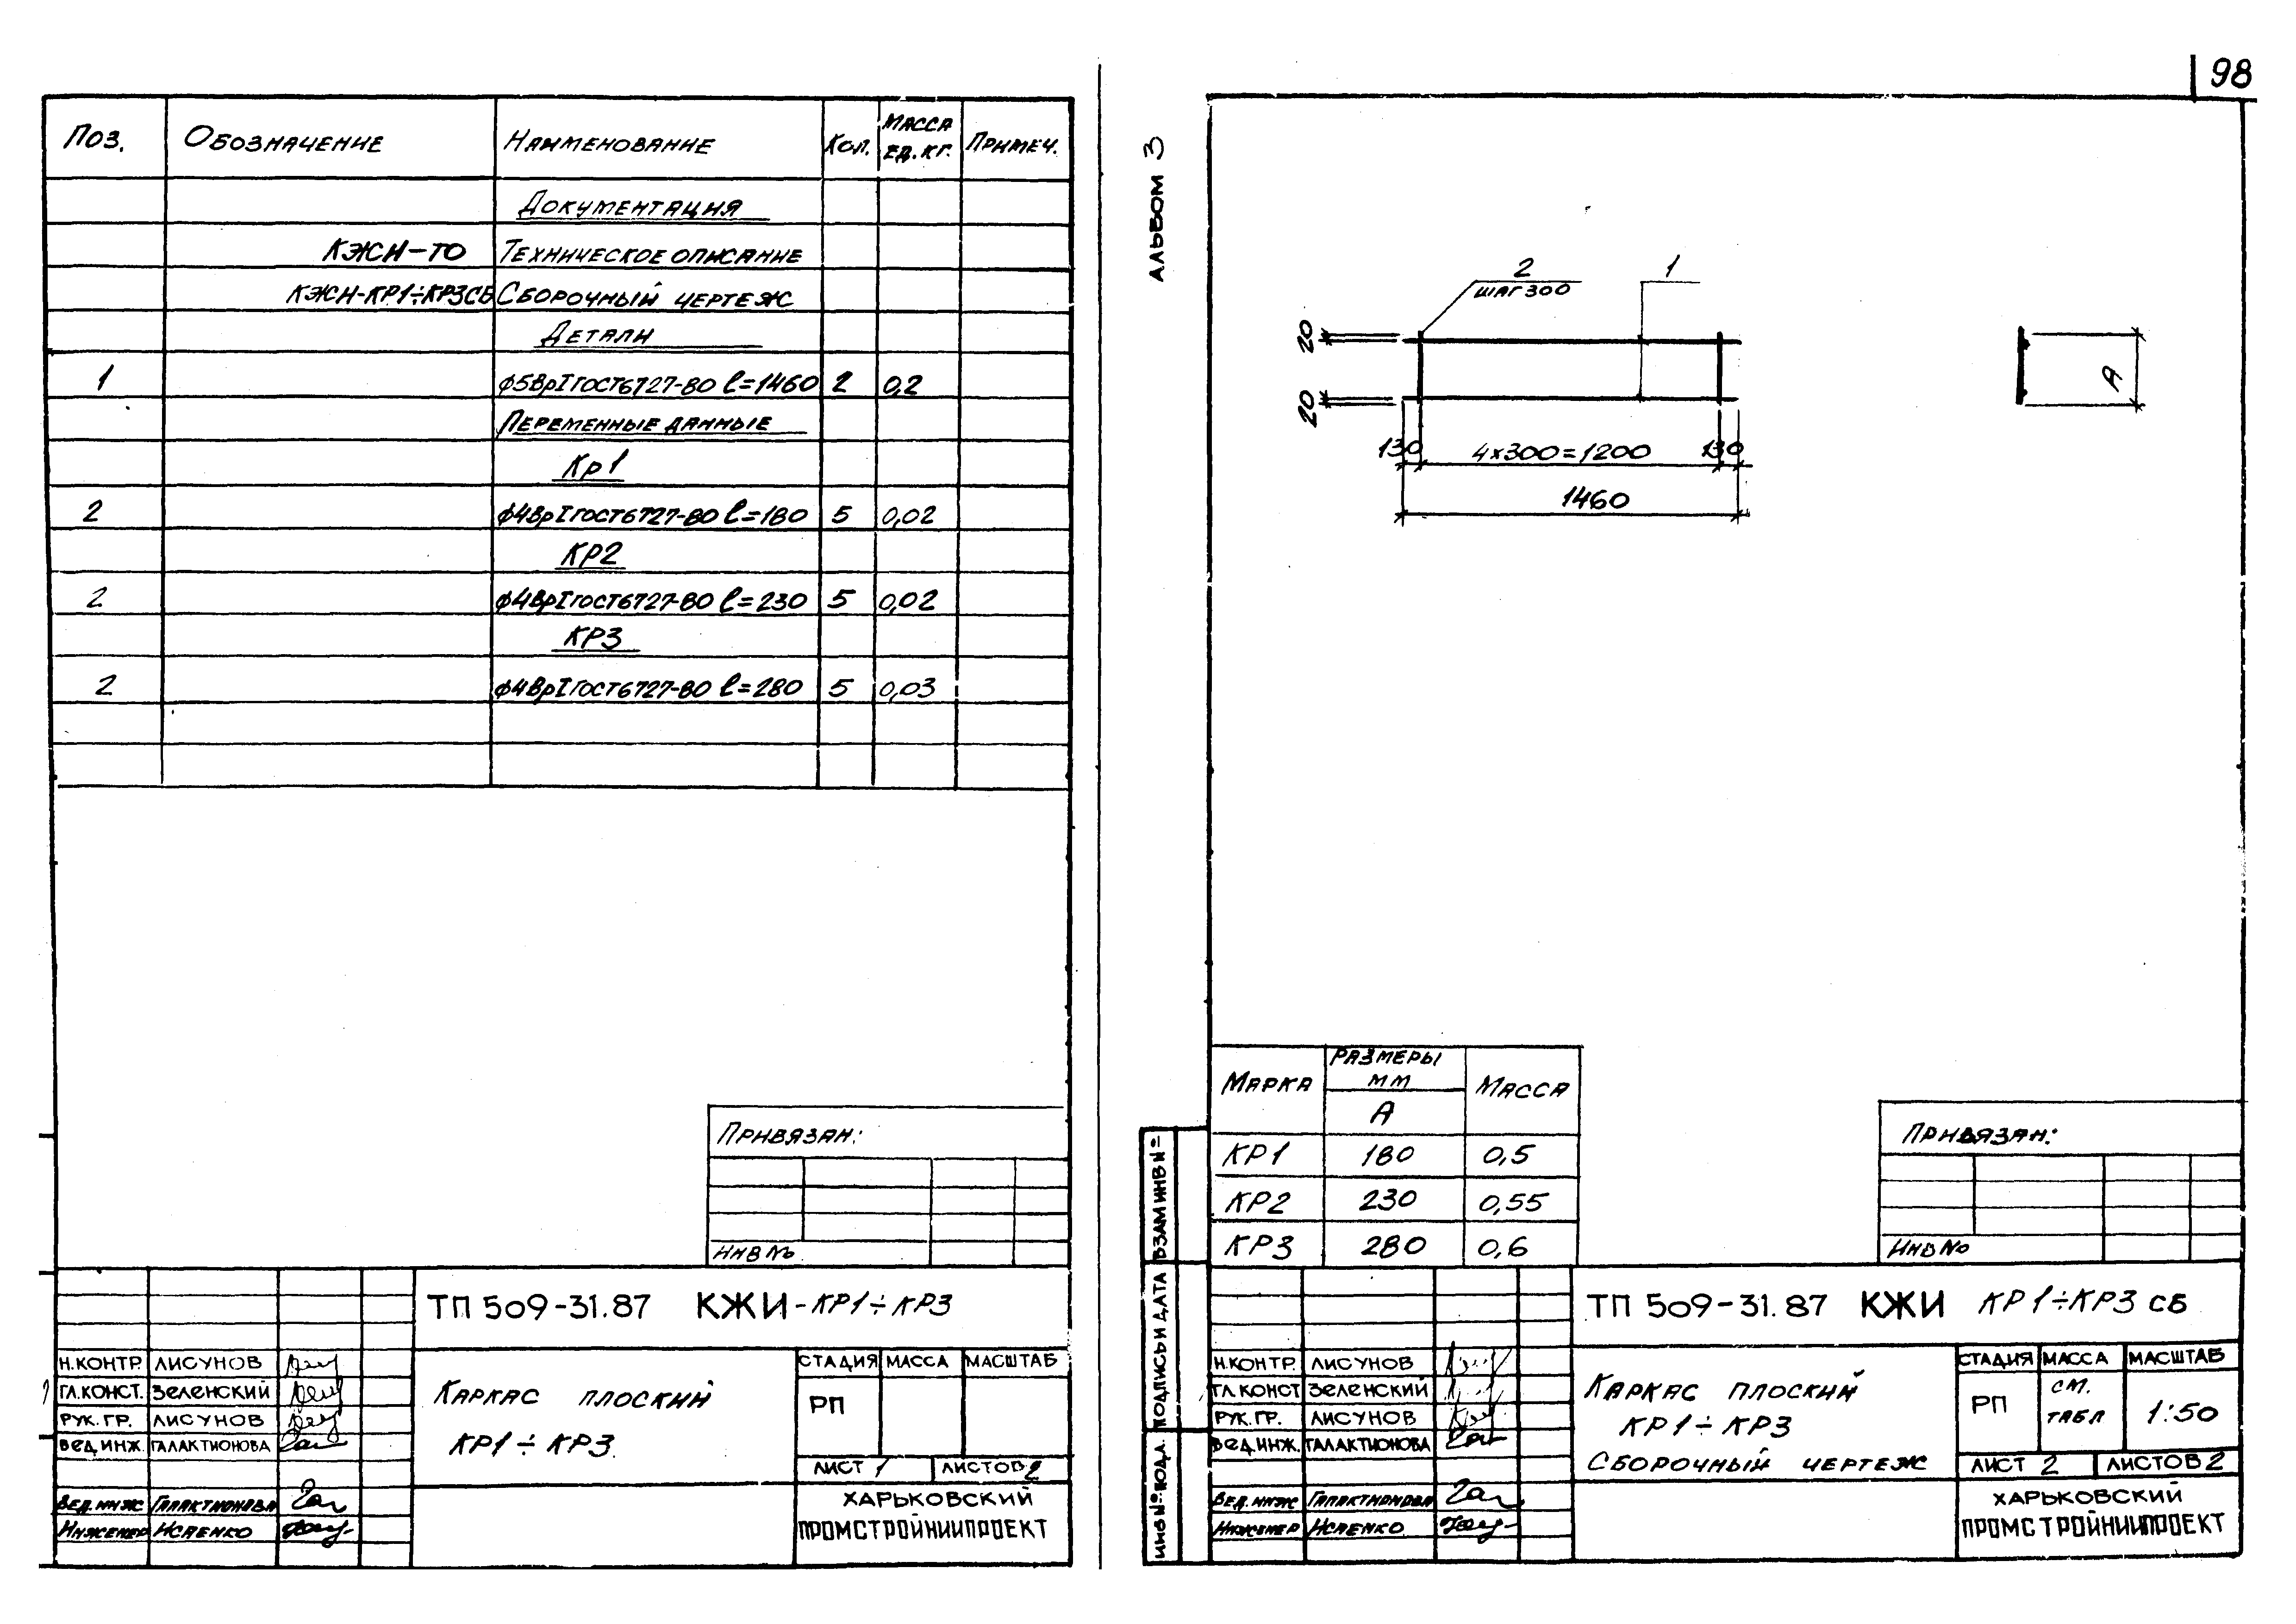 98
Поз. Обозначение Наименование Кол. Масса ед. кг. Примеч.
Документация
КЖИ-ТО Техническое описание
КЖИ-КР1÷КР3СБ Сборочный чертеж
Детали
1 ф5ВрI ГОСТ6727-80 ℓ=1460 2 0,2
Переменные данные
Кр1
2 ф4ВрI ГОСТ6727-80 ℓ=180 5 0,02
КР2
2 ф4ВрI ГОСТ6727-80 ℓ=230 5 0,02
КР3
2 ф4ВрI ГОСТ6727-80 ℓ=280 5 0,03
Привязан:
Инв №
ТП 509-31.87 КЖИ-КР1÷КР3
Н.КОНТР. ЛИСУНОВ
ГЛ.КОНСТ. ЗЕЛЕНСКИЙ
РУК. ГР. ЛИСУНОВ
ВЕД.ИНЖ. ГАЛАКТИОНОВА
Вед.инж Галактионова
Инженер Исаенко
Каркас плоский
КР1÷КР3.
СТАДИЯ МАССА МАСШТАБ
РП
ЛИСТ 1 ЛИСТОВ 2
ХАРЬКОВСКИЙ
ПРОМСТРОЙНИИПРОЕКТ
АЛЬБОМ 3
2
шаг 300
1
20
20
130 4х300=1200 130
1460
А
Марка Размеры мм Масса
А
КР1 180 0,5
КР2 230 0,55
КР3 280 0,6
Привязан:
Инв №
ВЗАМ ИНВ №
ПОДПИСЬ И ДАТА
ИНВ № ПОДЛ.
ТП 509-31.87 КЖИ КР1÷КР3 СБ
Н.КОНТР. ЛИСУНОВ
ГЛ.КОНСТ ЗЕЛЕНСКИЙ
РУК. ГР. ЛИСУНОВ
ВЕД.ИНЖ. ГАЛАКТИОНОВА
Вед.инж Галактионова
Инженер Исаенко
Каркас плоский
КР1÷КР3
Сборочный чертеж
СТАДИЯ МАССА МАСШТАБ
РП см. табл 1:50
ЛИСТ 2 ЛИСТОВ 2
ХАРЬКОВСКИЙ
ПРОМСТРОЙНИИПРОЕКТ